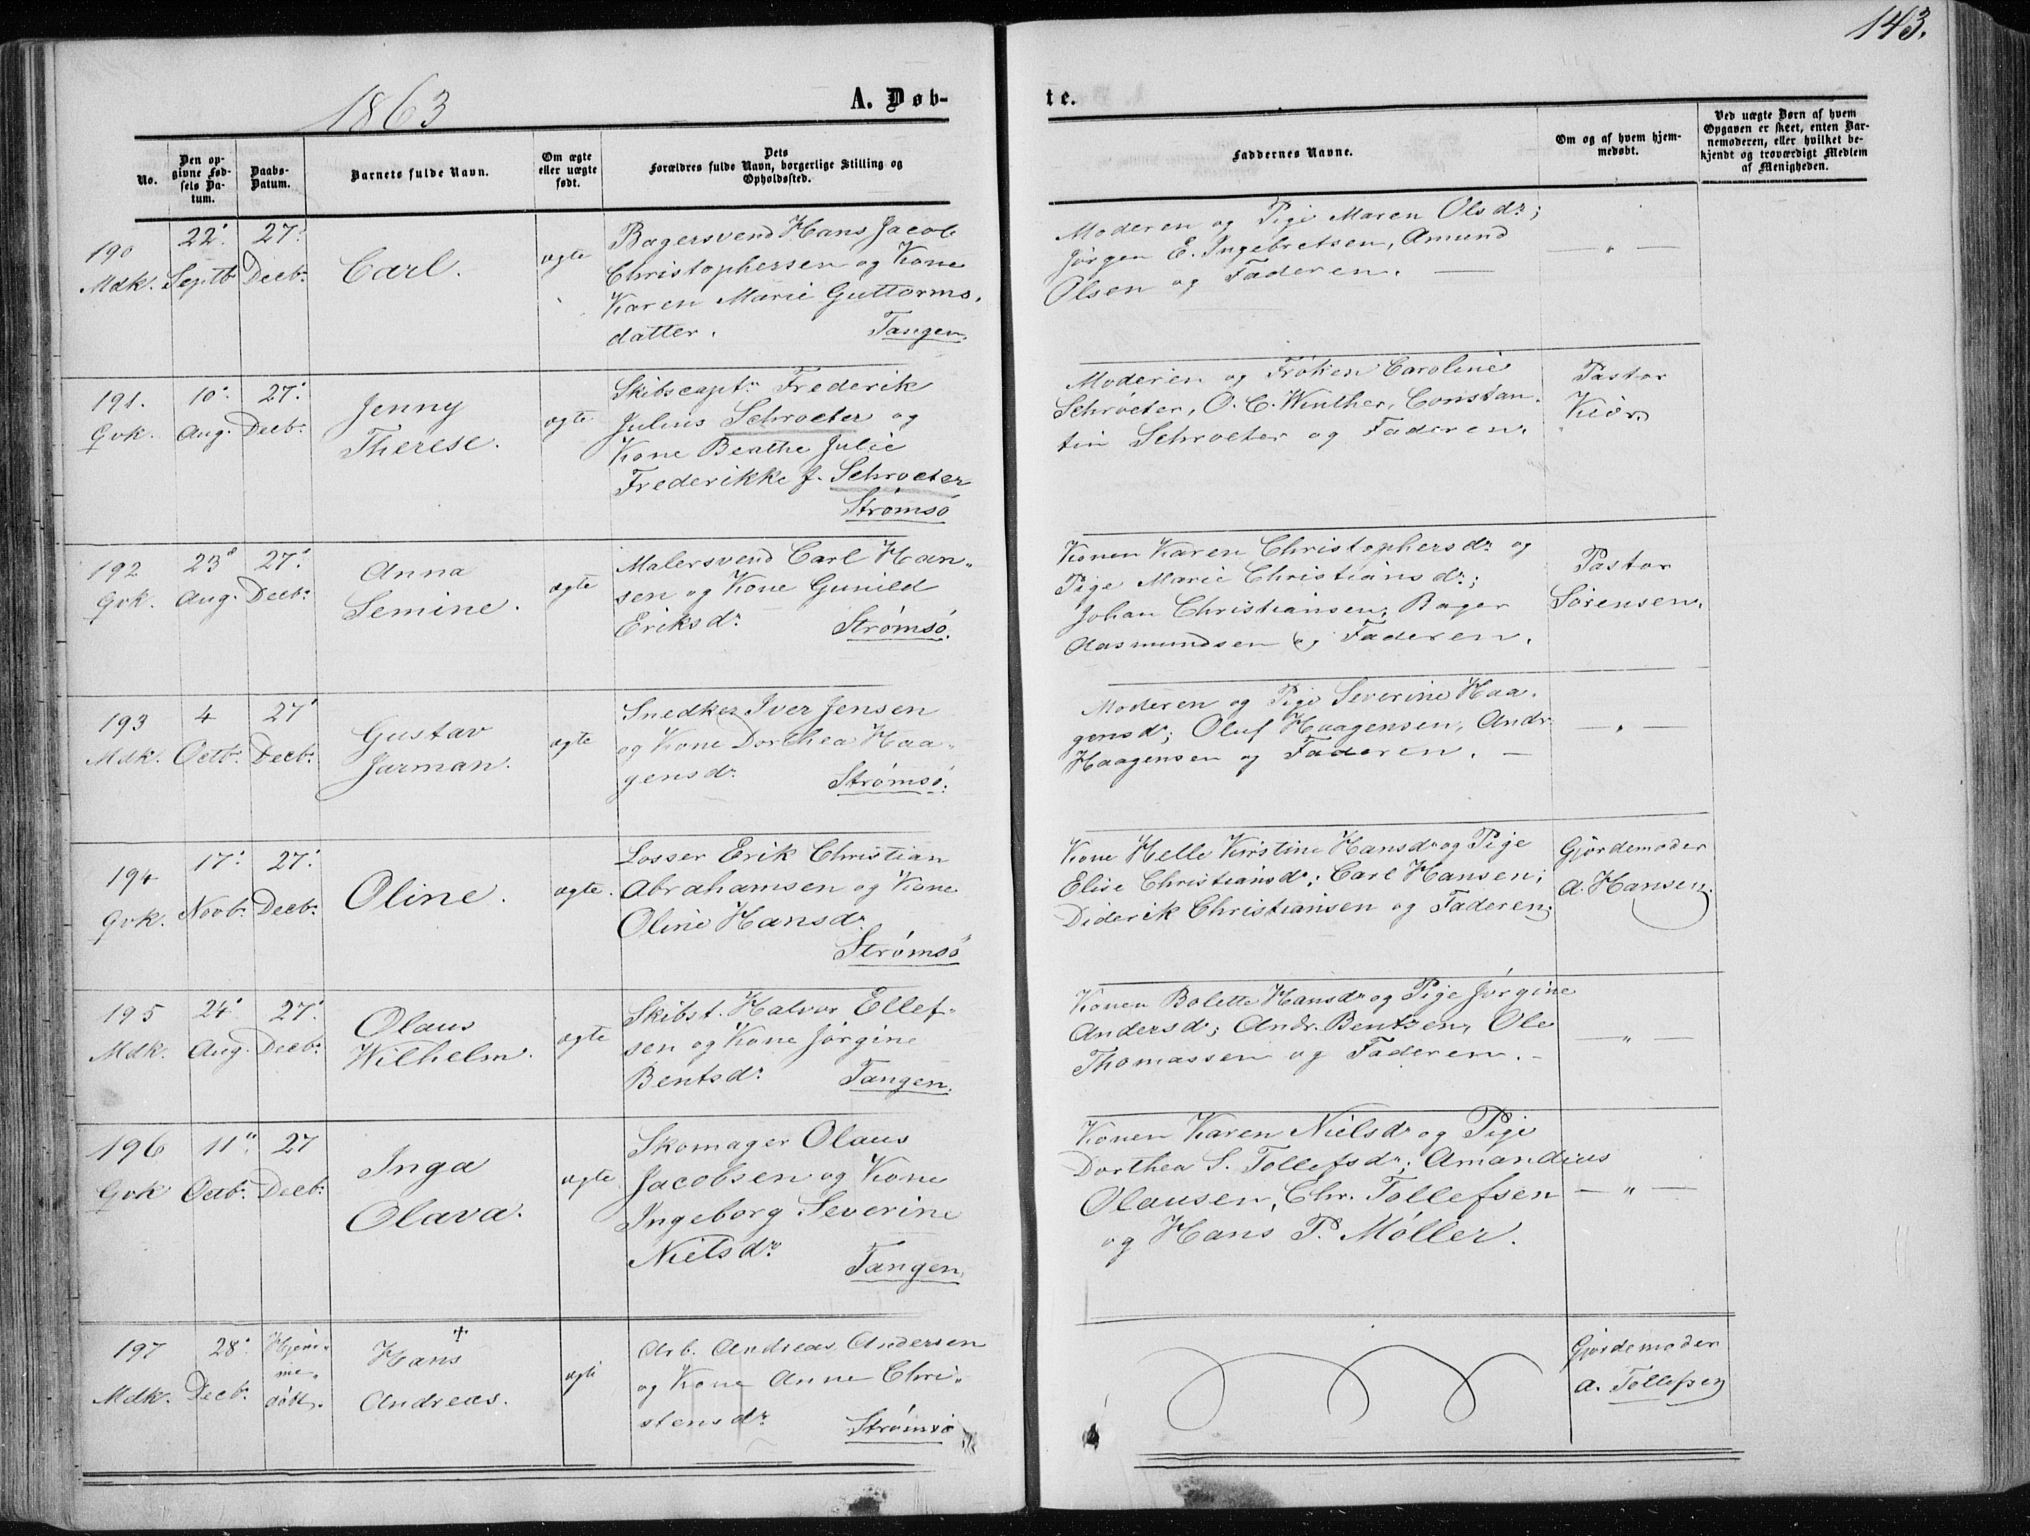 143.
1863
A. Døb-
te.
No.
Den op-
givne Fød-
sels Da-
tum.
Daabs-
Datum.
Barnets fulde Navn.
Om ægte
eller uægte
født.
Dets
Forældres fulde Navn, borgerlige Stilling og
Opholdssted.
Faddernes Navne.
Om og af hvem hjem-
medøbt.
Ved uægte Børn af hvem
Opgaven er skeet, enten Bar-
nemoderen, eller hvilket be-
kjendt og troværdigt Medlem
af Menigheden.
190
Mdk.
22.
Septb.
27.
Decbr.
Carl.
ægte
Bagersvend Hans Jacob
Christophersen og Kone
Karen Marie Guttorms-
datter. Tangen.
Moderen og Pige Maren Olsdr;
Jørgen E. Ingebretsen, Amund
Olsen og Faderen. —
— " —
191.
Qvk.
10.
Aug.
27.
Decbr.
Jenny
Therese.
ægte
Skibscaptn Frederik
Julius Schroeter og
Kone Beathe Julie
Frederikke f. Schroeter
Strømsø
Moderen og Frøken Caroline
Schröeter, O. C. Winther, Constan-
tin Schroeter og Faderen.
Pastor
Kiær.
192
Qvk.
23.
Aug.
27.
Decbr.
Anna
Semine.
ægte
Malersvend Carl Han-
sen og Kone Gunild
Eriksdr Strømsø.
Konen Karen Christophersdr og
Pige Marie Christiansdr;
Johan Christiansen, Bager
Aasmundsen og Faderen.
Pastor
Sørensen.
193
Mdk.
4
Octbr.
27.
Decbr.
Gustav
Jarman.
ægte
Snedker Iver Jensen
og Kone Dorthea Haa-
gensdr Strømsø.
Moderen og Pige Severine Haa-
gensdr; Oluf Haagensen, Andr.
Haagensen og Faderen. —
— " —
194
Qvk.
17.
Novbr.
27.
Decbr.
Oline.
ægte.
Losser Erik Christian
Abrahamsen og Kone
Oline Hansdr
Strømsø
Kone Helle Kirstine Hansdr og Pige
Elise Christiansdr; Carl Hansen;
Diderik Christiansen og Faderen.
Gjordemoder
A. Hansen.
195
Mdk.
24.
Aug.
27.
Decbr.
Olaus
Wilhelm.
ægte
Skibst. Halvor Ellef-
sen og Kone Jørgine
Bentsdr Tangen.
Konen Bolette Hansdr og Pige Jørgine
Andersdr; Andr. Bentzen, Ole
Thomassen og Faderen. -
— " —
196
Qvk
11.
Octbr.
27
Decbr.
Inga
Olava.
ægte.
Skomager Olaus
Jacobsen og Kone
Ingeborg Severine
Nielsdr
Tangen.
Konen Karen Nielsdr og Pige
Dorthea S. Tollefsdr; Amandius
Olausen, Chr. Tollefsen
og Hans P. Møller.
— " —
197
Mdk.
28.
Decbr.
Hjem-
me-
døbt.
Hans
Andreas.
ægte
Arb. Andreas Andersen
og Kone Anne Chri-
stensdr
Strømsø
Gjordemoder
A. Tollefsen